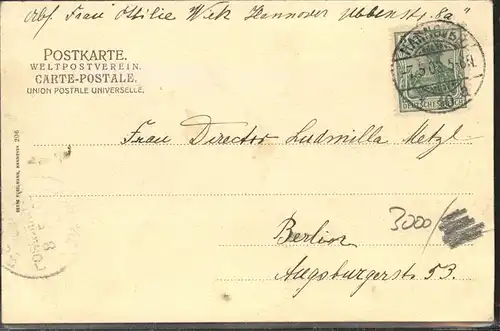 Abf. Frau Ottilie Wiek Hannover
POSTKARTE.
WELTPOSTVEREIN.
CARTE-POSTALE.
UNION POSTALE UNIVERSELLE.
HANNOVER
DEUTSCHES REICH
Frau Director Ludmilla Metzl
3000/
Berlin
Augsburgerstr. 53.